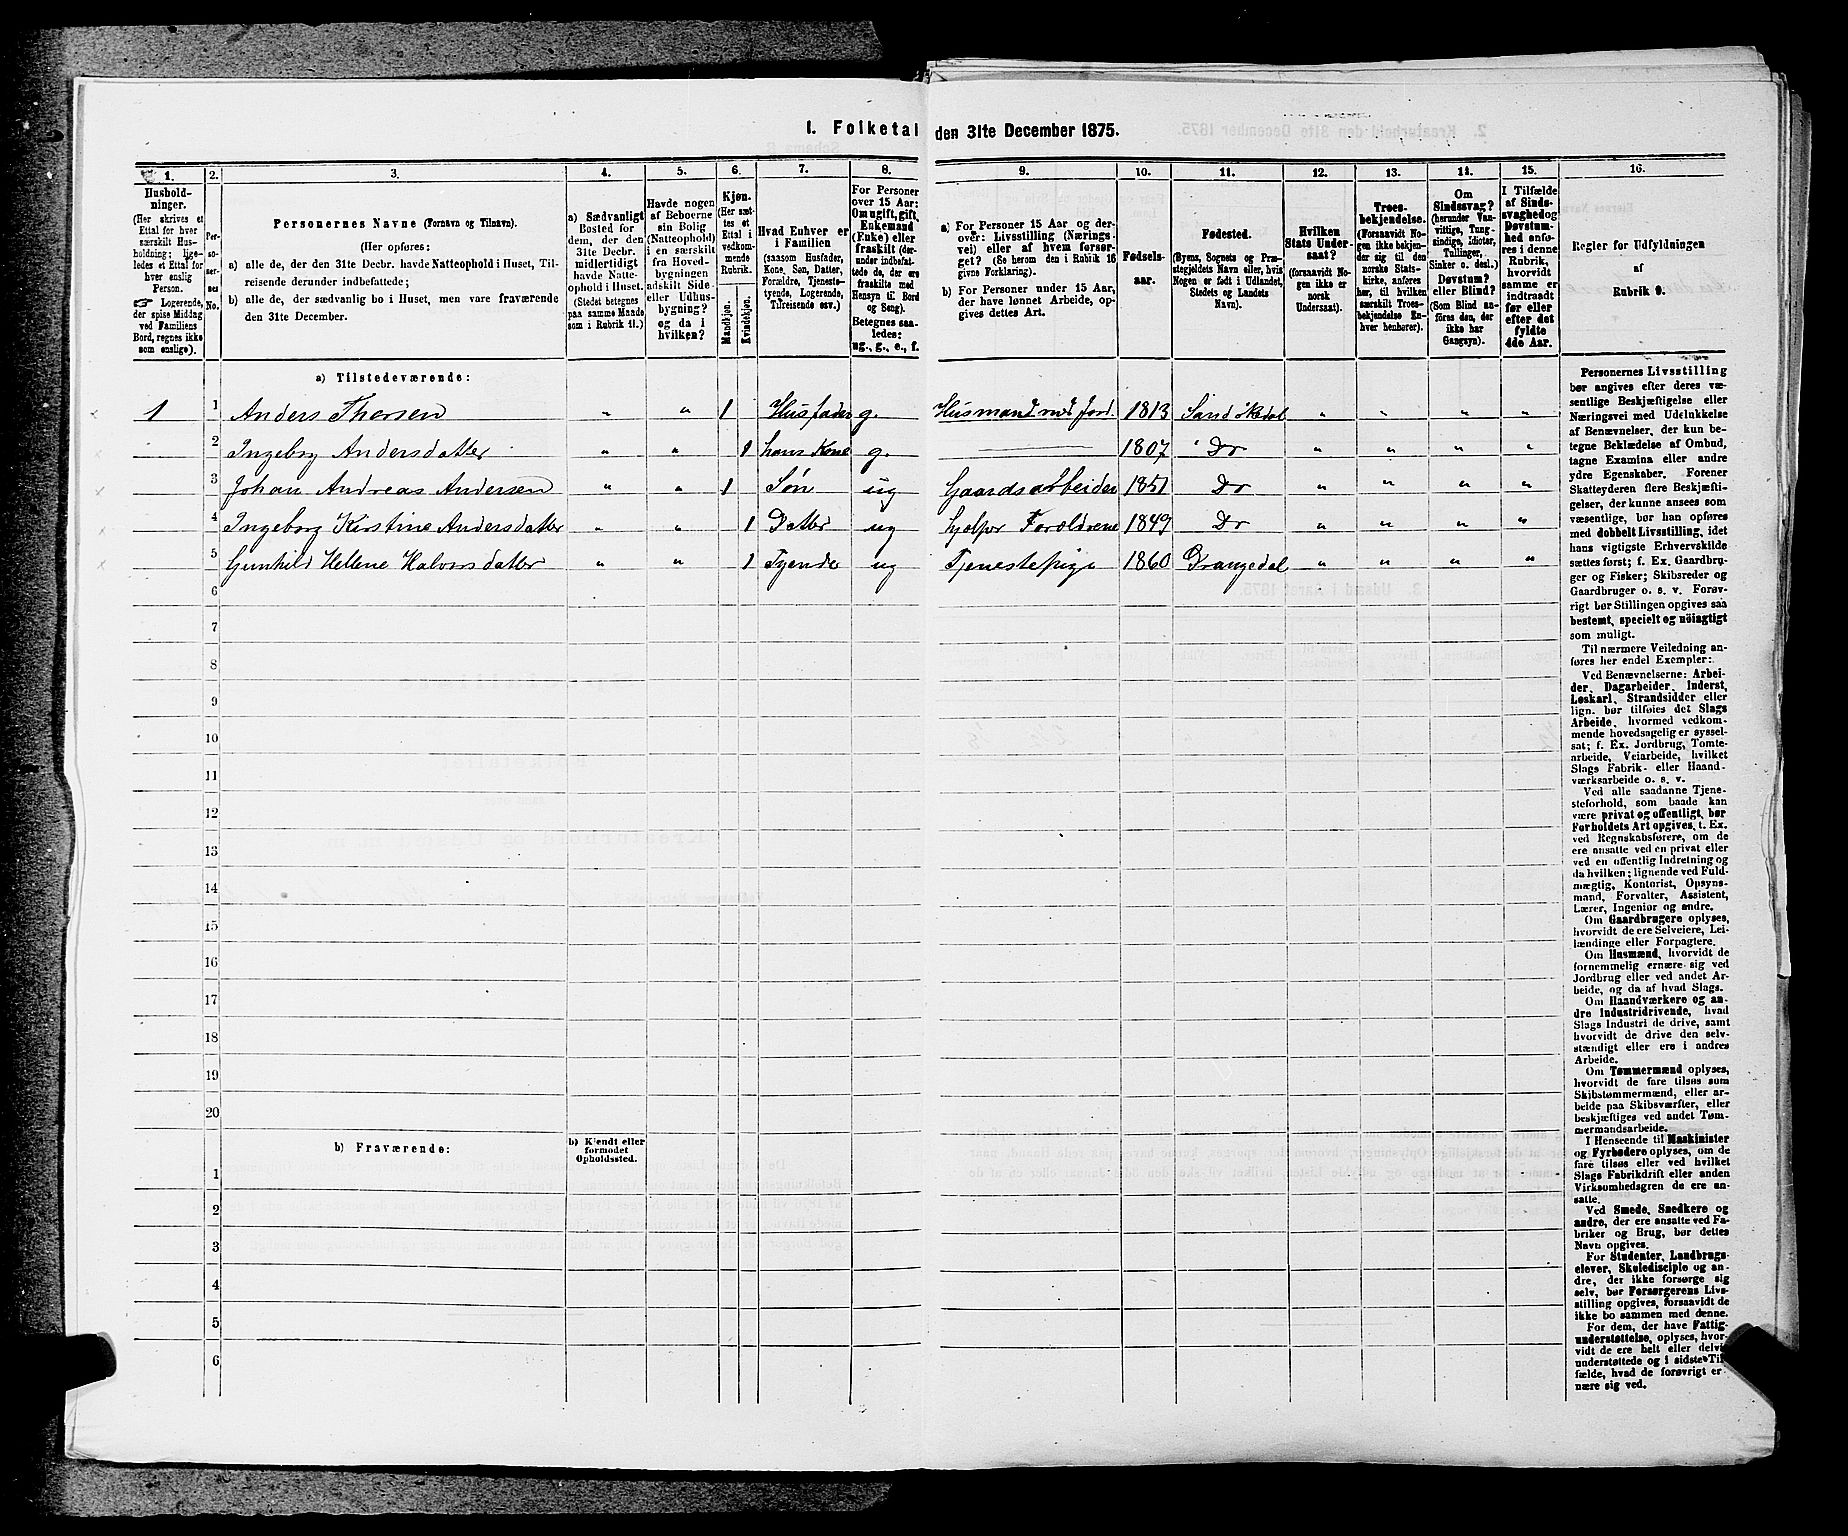 I. Folketal den 31te December 1875.
1. 2. 3. 4. 5. 6. 7. 8. 9. 10. 11. 12. 13. 14. 15. 16.
Husholdninger.
(Her skrives et
Ettal for hver
særskilt Husholdning;
ligeledes et Ettal for
hver enslig
Person.
☞ Logerende,
der spise Middag
ved Familiens
Bord, regnes ikke
som enslige).
Personernes No.
Personernes Navne (Fornavn og Tilnavn).
(Her opføres:
a) alle de, der den 31te Decbr. havde Natteophold i Huset, Tilreisende derunder indbefattede;
b) alle de, der sædvanlig bo i Huset, men vare fraværende
den 31te December.
a) Sædvanligt
Bosted for
dem, der den
31te Decbr.
midlertidigt
havde Natteophold i Huset.
(Stedet betegnes
paa samme Maade
som i Rubrik 11.)
Havde nogen
af Beboerne
sin Bolig
(Natteophold)
i en særskilt
fra Hovedbygningen
adskilt Side-
eller Udhusbygning?
og da i
hvilken?
Kjøn.
(Her sættes et
Ettal i
vedkommende
Rubrik.
Mandkjøn.
Kvindekjøn.
Hvad Enhver er
i Familien
(saasom Husfader,
Kone, Søn, Datter,
Forældre, Tjenestetyende, Logerende,
Tilreisende osv.)
For Personer
over 15 Aar:
Om ugift, gift,
Enkemand
(Enke) eller
fraskilt
(herunder indbefattede de, der ere
fraskilte med
Hensyn til Bord
og Seng).
Betegnes saaledes:
ug., g., e., f.
a) For Personer 15 Aar og derover: Livsstilling (Næringsvei) eller af hvem forsørget? (Se herom den i Rubrik 16
givne Forklaring).
b) For Personer under 15 Aar,
der have lønnet Arbeide, opgives dettes Art.
Fødselsaar.
Fødested.
(Byens, Sognets og Præstegjeldets Navn eller, hvis
Nogen er født i Udlandet,
Stedets og Landets
Navn).
Hvilken
Stats Undersaat?
(forsaavidt Nogen ikke er
norsk
Undersaat).
Troesbekjendelse.
(Forsaavidt Nogen ikke bekjender sig til den
norske Statskirke, anføres
her, til hvilken
særskilt Troesbekjendelse Enhver henhører).
Om
Sindssvag?
(herunder Vanvittige, Tungsindige, Idioter,
Tullinger,
Sinker o. desl.)
Døvstum?
eller Blind?
(Som Blind anføres den, der
ikke har
Gangsyn).
I Tilfælde
af Sindssvaghed og
Døvstumhed anføres i denne
Rubrik,
hvorvidt
samme er
indtraadt
før eller
efter det
fyldte
4de Aar.
Regler for Udfyldningen
af
Rubrik 9.
a) Tilstedeværende:
1 1 Anders Thorsen „ „ 1 Husfader g. Husmand med Jord 1813 Sandökedal „ „ „ „
2 Ingeborg Andersdatter „ „ 1 hans Kone g. 1807 Do „ „ „ „
3 Johan Andreas Andersen „ „ 1 Søn ug Gaardsarbeider 1851 Do „ „ „ „
4 Ingeborg Kirstine Andersdatter „ „ 1 Datter ug hjælper Forældrene 1849 Do „ „ „ „
5 Gunhild Hellene Halvorsdatter „ „ 1 Tyende ug Tjenestepige 1860 Drangedal „ „ „ „
6
7
8
9
10
11
12
13
14
15
16
17
18
19
20
b) Fraværende:
b) Kjendt eller
formodet
Opholdssted.
1
2
3
4
5
6
Personernes Livsstilling
bør angives efter deres væsentlige Beskjæftigelse eller
Næringsvei med Udelukkelse
af Benævnelser, der kun betegne Beklædelse af Ombud,
tagne Examina eller andre
ydre Egenskaber. Forener
Skatteyderen flere Beskjæftigelser, der kunne ansees som
væsentlige, bør han opføres
med dobbelt Livsstilling, idet
hans vigtigste Erhvervskilde
sættes først; f. Ex. Gaardbruger og Fisker; Skibsreder og
Gaardbruger o. s. v. Forøvrigt bør Stillingen opgives saa
bestemt, specielt og nöiagtigt
som muligt.
Til nærmere Veiledning anføres her endel Exempler:
Ved Benævnelserne: Arbeider, Dagarbeider, Inderst,
Løskarl, Strandsidder eller
lign. bør tilføies det Slags
Arbeide, hvormed vedkommende hovedsagelig er sysselsat; f. Ex. Jordbrug, Tomtearbeide, Veiarbeide, hvilket
Slags Fabrik- eller Haandværksarbeide o. s. v.
Ved alle saadanne Tjenesteforhold, som baade kan
være privat og offentligt, bør
Forholdets Art opgives, t. Ex.
ved Regnskabsførere, om de
ere ansatte ved en privat eller
ved en offentlig Indretning og
da hvilken; lignende ved Fuldmægtig, Kontorist, Opsynsmand, Forvalter, Assistent,
Lærer, Ingeniør og andre.
Om Gaardbrugere oplyses,
hvorvidt de ere Selveiere, Leilændinge eller Forpagtere.
Om Husmænd, hvorvidt de
fornemmelig ernære sig ved
Jordbrug eller ved andet Arbeide, og da af hvad Slags.
Om Haandværkere og andre Industridrivende, hvad
Slags Industri de drive, samt
hvorvidt de drive den selvstændigt eller ere i andres
Arbeide.
Om Tømmermænd oplyses,
hvorvidt de fare tilsøs som
Skibstømmermænd, eller arbeide paa Skibsværfter, eller
beskjæftiges ved andet Tømmermandsarbeide.
I Henseende til Maskinister
og Fyrbødere oplyses, om de
fare tilsøs eller ved hvilket
Slags Fabrikdrift eller anden
Virksomhedsgren de ere ansatte.
Ved Smede, Snedkere og
andre, der ere ansatte ved Fabriker og Brug, bør dettes
Navn opgives.
For Studenter, Landbrugselever, Skoledisciple og andre, der ikke forsørge sig
selv, bør Forsørgerens Livsstilling opgives, forsaavidt de
ikke bo sammen med denne.
For dem, der have Fattigunderstøttelse, oplyses, hvorvidt de ere helt eller delvis
understøttede og i sidste Tilfælde, hvad de forøvrigt ernære sig ved.